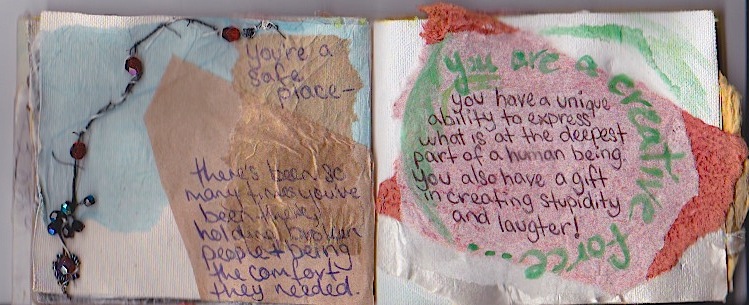 You're a
safe
place-
there's been so
many times you've
been there,
holding broken
people + being
the comfort
they needed.
you are a creative force...
you have a unique
ability to express
what is at the deepest
part of a human being.
you also have a gift
in creating stupidity
and laughter!